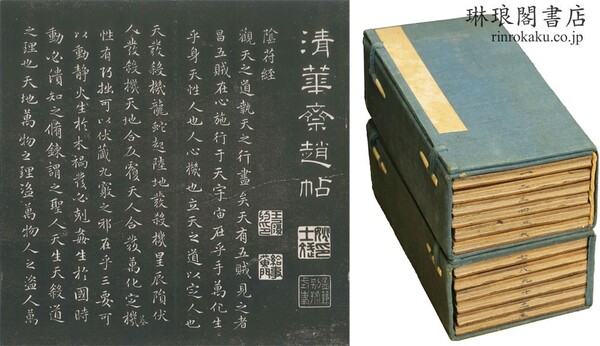 琳琅閣書店
rinrokaku.co.jp
清華齋趙帖
陰符經
觀天之道執天之行盡矣天有五賊見之者
昌五賊在心施行于天宇宙在乎手萬化生
乎身天性人也人心機也立天之道以定人也
天發殺機龍蛇起陸地發殺機星辰隕伏
人發殺機天地合反覆天人合發萬化定機基
性有巧拙可以伏藏九竅之邪在乎三要可
以動靜火生於木禍發必剋姦生於國時
動必潰知之脩鍊謂之聖人天生天殺道
之理也天地萬物之理盜萬物人之盜人萬